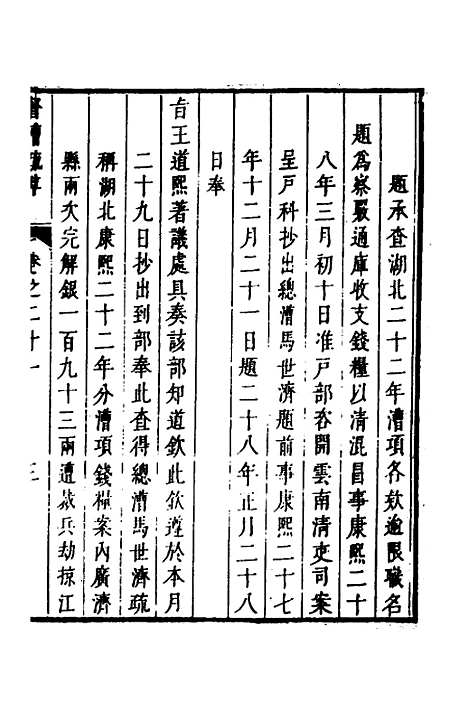 題承查湖北二十二年漕項各欵逾限職名
題為察嚴通庫收支錢糧以清混昌事康熙二十
八年三月初十日准戶部咨開雲南清吏司案
呈戶科抄出總漕馬世濟題前事康熙二十七
年十二月二十一日題二十八年正月二十八
日奉
旨王道熙著議處具奏該部知道欽此欽遵於本月
二十九日抄出到部奉此查得總漕馬世濟疏
稱湖北康熙二十二年分漕項錢糧案內廣濟
縣兩次完解銀一百九十三兩遭裁兵劫掠江
督漕疏草 卷之二十一 三